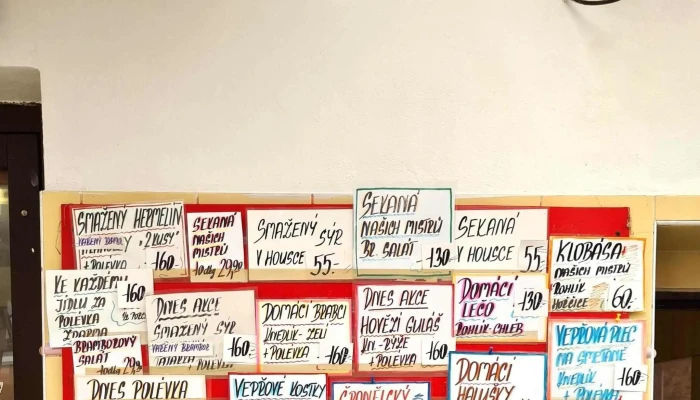 SMAŽENÝ HERMELÍN
"2 KUSY"
+ POLÉVKA 160.-
SEKANÁ
NAŠICH
MISTRŮ
10dkg 29,90
SMAŽENÝ SÝR
V HOUSCE 55.-
SEKANÁ
NAŠICH MISTRŮ
BR. SALÁT 130.-
SEKANÁ
V HOUSCE 55.-
KLOBÁSA
NAŠICH MISTRŮ
ROHLÍK
HOŘČICE 60.-
KE KAŽDÉMU
JÍDLU ZA 160.-
POLÉVKA
ZDARMA
BRAMBOROVÝ
SALÁT
10dkg 29,90
DNES AKCE
SMAŽENÝ SÝR
VAŘENÝ BRAMBOR
TATARKA 160.-
+ POLÉVKA
DOMÁCÍ BRABCI
KNEDLÍK - ZELÍ
+ POLÉVKA 160.-
DNES AKCE
HOVĚZÍ GULÁŠ
KN. - RÝŽE
+ POLÉVKA 160.-
DOMÁCÍ
LEČO 130.-
ROHLÍK - CHLEB
VEPŘOVÁ PLEC
NA SMETANĚ
KNEDLÍK
+ POLÉVKA 160.-
DNES POLÉVKA
VEPŘOVÉ KOSTKY
ŠPANĚLSKÝ
DOMÁCÍ
HALUŠKY